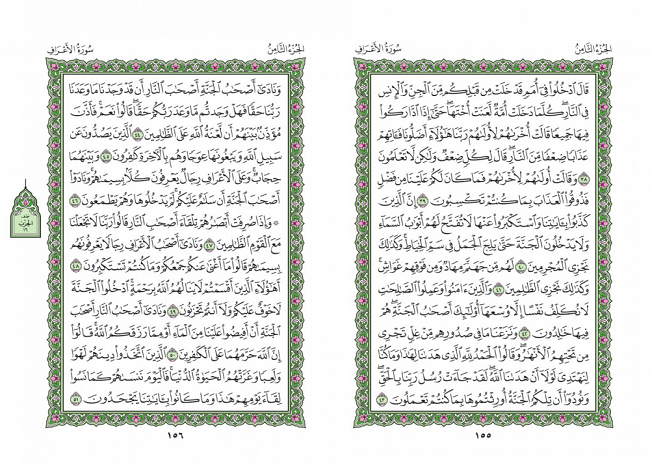 الجزء الثامن
سورة الأعراف
قَالَ ٱدْخُلُوا۟ فِىٓ أُمَمٍ قَدْ خَلَتْ مِن قَبْلِكُم مِّنَ ٱلْجِنِّ وَٱلْإِنسِ
فِى ٱلنَّارِ ۖ كُلَّمَا دَخَلَتْ أُمَّةٌ لَّعَنَتْ أُخْتَهَا ۖ حَتَّىٰٓ إِذَا ٱدَّارَكُوا۟
فِيهَا جَمِيعًا قَالَتْ أُخْرَىٰهُمْ لِأُولَىٰهُمْ رَبَّنَا هَٰٓؤُلَآءِ أَضَلُّونَا فَـَٔاتِهِمْ
عَذَابًا ضِعْفًا مِّنَ ٱلنَّارِ ۖ قَالَ لِكُلٍّ ضِعْفٌ وَلَٰكِن لَّا تَعْلَمُونَ
٣٨ وَقَالَتْ أُولَىٰهُمْ لِأُخْرَىٰهُمْ فَمَا كَانَ لَكُمْ عَلَيْنَا مِن فَضْلٍ
فَذُوقُوا۟ ٱلْعَذَابَ بِمَا كُنتُمْ تَكْسِبُونَ ٣٩ إِنَّ ٱلَّذِينَ
كَذَّبُوا۟ بِـَٔايَٰتِنَا وَٱسْتَكْبَرُوا۟ عَنْهَا لَا تُفَتَّحُ لَهُمْ أَبْوَٰبُ ٱلسَّمَآءِ
وَلَا يَدْخُلُونَ ٱلْجَنَّةَ حَتَّىٰ يَلِجَ ٱلْجَمَلُ فِى سَمِّ ٱلْخِيَاطِ ۚ وَكَذَٰلِكَ
نَجْزِى ٱلْمُجْرِمِينَ ٤٠ لَهُم مِّن جَهَنَّمَ مِهَادٌ وَمِن فَوْقِهِمْ غَوَاشٍ ۚ
وَكَذَٰلِكَ نَجْزِى ٱلظَّٰلِمِينَ ٤١ وَٱلَّذِينَ ءَامَنُوا۟ وَعَمِلُوا۟ ٱلصَّٰلِحَٰتِ
لَا نُكَلِّفُ نَفْسًا إِلَّا وُسْعَهَآ أُو۟لَٰٓئِكَ أَصْحَٰبُ ٱلْجَنَّةِ ۖ هُمْ
فِيهَا خَٰلِدُونَ ٤٢ وَنَزَعْنَا مَا فِى صُدُورِهِم مِّنْ غِلٍّ تَجْرِى
مِن تَحْتِهِمُ ٱلْأَنْهَٰرُ ۖ وَقَالُوا۟ ٱلْحَمْدُ لِلَّهِ ٱلَّذِى هَدَىٰنَا لِهَٰذَا وَمَا كُنَّا
لِنَهْتَدِىَ لَوْلَآ أَنْ هَدَىٰنَا ٱللَّهُ ۖ لَقَدْ جَآءَتْ رُسُلُ رَبِّنَا بِٱلْحَقِّ ۖ
وَنُودُوٓا۟ أَن تِلْكُمُ ٱلْجَنَّةُ أُورِثْتُمُوهَا بِمَا كُنتُمْ تَعْمَلُونَ ٤٣
١٥٥
الجزء الثامن
سورة الأعراف
وَنَادَىٰٓ أَصْحَٰبُ ٱلْجَنَّةِ أَصْحَٰبَ ٱلنَّارِ أَن قَدْ وَجَدْنَا مَا وَعَدَنَا
رَبُّنَا حَقًّا فَهَلْ وَجَدتُّم مَّا وَعَدَ رَبُّكُمْ حَقًّا ۖ قَالُوا۟ نَعَمْ ۚ فَأَذَّنَ
مُؤَذِّنٌۢ بَيْنَهُمْ أَن لَّعْنَةُ ٱللَّهِ عَلَى ٱلظَّٰلِمِينَ ٤٤ ٱلَّذِينَ يَصُدُّونَ عَن
سَبِيلِ ٱللَّهِ وَيَبْغُونَهَا عِوَجًا وَهُم بِٱلْـَٔاخِرَةِ كَٰفِرُونَ ٤٥ وَبَيْنَهُمَا
حِجَابٌ ۚ وَعَلَى ٱلْأَعْرَافِ رِجَالٌ يَعْرِفُونَ كُلًّۢا بِسِيمَىٰهُمْ ۚ وَنَادَوْا۟
أَصْحَٰبَ ٱلْجَنَّةِ أَن سَلَٰمٌ عَلَيْكُمْ ۚ لَمْ يَدْخُلُوهَا وَهُمْ يَطْمَعُونَ ٤٦
۞ وَإِذَا صُرِفَتْ أَبْصَٰرُهُمْ تِلْقَآءَ أَصْحَٰبِ ٱلنَّارِ قَالُوا۟ رَبَّنَا لَا تَجْعَلْنَا
مَعَ ٱلْقَوْمِ ٱلظَّٰلِمِينَ ٤٧ وَنَادَىٰٓ أَصْحَٰبُ ٱلْأَعْرَافِ رِجَالًا يَعْرِفُونَهُم
بِسِيمَىٰهُمْ قَالُوا۟ مَآ أَغْنَىٰ عَنكُمْ جَمْعُكُمْ وَمَا كُنتُمْ تَسْتَكْبِرُونَ ٤٨
أَهَٰٓؤُلَآءِ ٱلَّذِينَ أَقْسَمْتُمْ لَا يَنَالُهُمُ ٱللَّهُ بِرَحْمَةٍ ۚ ٱدْخُلُوا۟ ٱلْجَنَّةَ
لَا خَوْفٌ عَلَيْكُمْ وَلَآ أَنتُمْ تَحْزَنُونَ ٤٩ وَنَادَىٰٓ أَصْحَٰبُ ٱلنَّارِ أَصْحَٰبَ
ٱلْجَنَّةِ أَنْ أَفِيضُوا۟ عَلَيْنَا مِنَ ٱلْمَآءِ أَوْ مِمَّا رَزَقَكُمُ ٱللَّهُ ۚ قَالُوٓا۟
إِنَّ ٱللَّهَ حَرَّمَهُمَا عَلَى ٱلْكَٰفِرِينَ ٥٠ ٱلَّذِينَ ٱتَّخَذُوا۟ دِينَهُمْ لَهْوًا
وَلَعِبًا وَغَرَّتْهُمُ ٱلْحَيَوٰةُ ٱلدُّنْيَا ۚ فَٱلْيَوْمَ نَنسَىٰهُمْ كَمَا نَسُوا۟
لِقَآءَ يَوْمِهِمْ هَٰذَا وَمَا كَانُوا۟ بِـَٔايَٰتِنَا يَجْحَدُونَ ٥١
الحزب
١٦
١٥٦